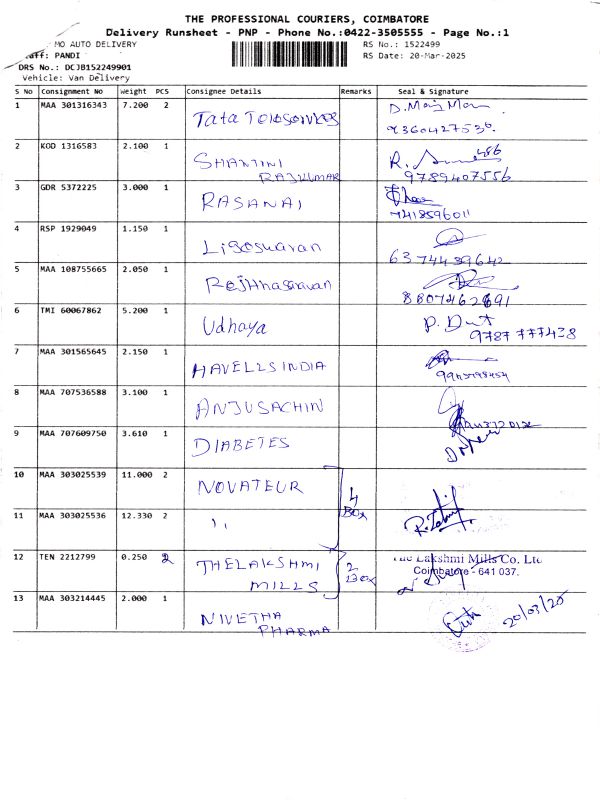 THE PROFESSIONAL COURIERS, COIMBATORE
Delivery Runsheet - PNP - Phone No.:0422-3505555 - Page No.:1
MO AUTO DELIVERY RS No.: 1522499
Staff: PANDI RS Date: 20-Mar-2025
DRS No.: DCJB152249901
Vehicle: Van Delivery
S No Consignment No Weight PCS Consignee Details Remarks Seal & Signature
1 MAA 301316343 7.200 2 Tata Teleservices D. Moij Mon
9360427536.
2 KOD 1316583 2.100 1 SHANTINI
RAJKUMAR 9789407556
3 GDR 5372225 3.000 1 RASANAI
7418596011
4 RSP 1929049 1.150 1 Ligeswaran
6374439642
5 MAA 108755665 2.050 1
8807462691
6 TMI 60067862 5.200 1 Udhaya P. Dut
9787777438
7 MAA 301565645 2.150 1 HAVELLS INDIA
8 MAA 707536588 3.100 1 ANJUSACHIN
9 MAA 707609750 3.610 1 DIABETES
10 MAA 303025539 11.000 2 NOVATEUR 4
BOX
11 MAA 303025536 12.330 2 ,,
12 TEN 2212799 0.250 2 THELAKSHMI 2 The Lakshmi Mills Co. Ltd
MILLS Box Coimbatore - 641 037.
13 MAA 303214445 2.000 1 NIVETHA 20/03/25
PHARMA